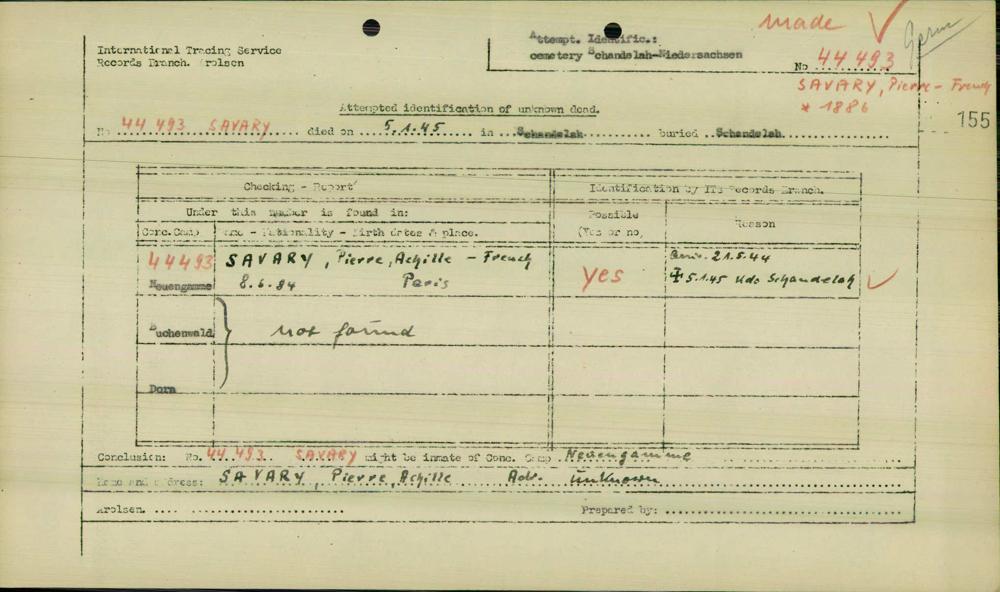 made ✓
International Tracing Service
Records Branch. Arolsen
Attempt. Identific.:
cemetery Schandelah-Niedersachsen
No 44 493
SAVARY, Pierre - French
* 1886
155
Attempted identification of unknown dead.
No 44 493 SAVARY died on 5.1.45 in Schandelah buried Schandelah
Checking - Report
Identification by ITS Records Branch.
Under this number is found in:
Possible
(Yes or no,
Reason
Conc. Camp
Name - Nationality - Birth dates & place.
44493
SAVARY, Pierre, Achille - French
Neuengamme
8.6.84 Paris
yes
21.5.44
5.1.45 Kdo Schandelah ✓
Buchenwald
not found
Dora
Conclusion: No. 44 493 SAVARY might be inmate of Conc. Camp Neuengamme
Name and address: SAVARY, Pierre, Achille Adr. unknown
Arolsen.
Prepared by: